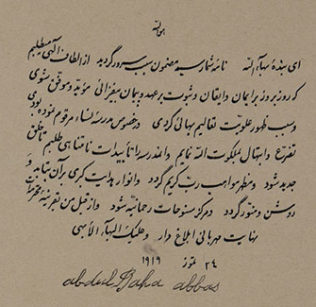 هوالله
ای بندهٔ بهاءالله نامه شما رسید مضمون سبب سرور گردید از الطاف الهی میطلبم
که روز بروز بر ایمان و ایقان و ثبوت بر عهد و پیمان بیفزائی مؤید و موفق شوی
و سبب ظهور علویت تعالیم بهائی گردی در خصوص مدرسه نساء مرقوم نموده بودی
تضرع و ابتهال بملکوت الله نمایم و آن مدرسه را تأییدات نامتناهی طلبم تا خلق
جدید شود و مظهر مواهب رب کریم گردد و انوار هدایت کبری بر آن بتابد و
روشن و منور گردد و مرکز سنوحات رحمانیه شود و از قبل من
نهایت مهربانی ابلاغ دار و علیک البهاء الأبهی
٢٤ تموز ١٩١٩
abdul Baha abbas